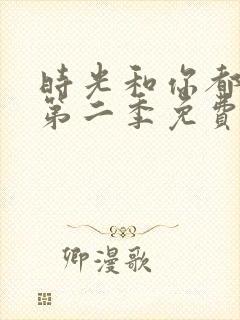 時光和你都
第二季免費
卿漫歌